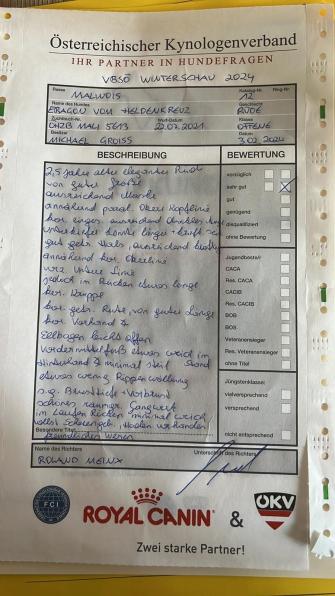 Österreichischer Kynologenverband
IHR PARTNER IN HUNDEFRAGEN
VBSÖ WINTERSCHAU 2024
Rasse
Katalog-Nr.
Ring-Nr.
MALINOIS
12
Name des Hundes
Geschlecht
ERAGON VOM HELDENKREUZ
RÜDE
Zuchtbuch-Nr.
Wurf-Datum
Klasse
ÖHZB MALI 5613
22.07.2021
OFFENE
Besitzer
Datum
MICHAEL GROISS
3.02.2024
BESCHREIBUNG
BEWERTUNG
2,5 Jahre alter eleganter Rüde
von guter Größe
ausreichend Maske
annähernd paral. Obere Kopflinie
kor. ausreichend dunkles
Unterkiefer könnte länger +
gut gebr. Hals, ausreichend
annähernd kor. Oberlinie
vorz. Untere Linie
jedoch im Rücken etwas lange
kor. Kruppe
kor. getr. Rute, von guter Länge
kor. Vorhand &
Ellbogen leicht offen
Vordermittelfuß etwas weich im
Hinterhand & minimal steil Stand
etwas wenig Rippenwölbung
s.g. Brusttiefe + Vorbrust
schönes raumgr. Gangwerk
im Laufen Rücken minimal weich
vollst. Scherengebiß, Hoden vorhanden
freundliches Wesen
vorzüglich
sehr gut
gut
genügend
disqualifiziert
ohne Bewertung
Jugendbester
CACA
Res. CACA
CACIB
Res. CACIB
BOB
BOS
Veteranensieger
Res. Veteranensieger
ohne Titel
Jüngstenklasse:
vielversprechend
versprechend
nicht entsprechend
Besondere Titel
Name des Richters
Unterschrift des Richters
ROLAND
FCI
ROYAL CANIN
&
ÖKV
Zwei starke Partner!